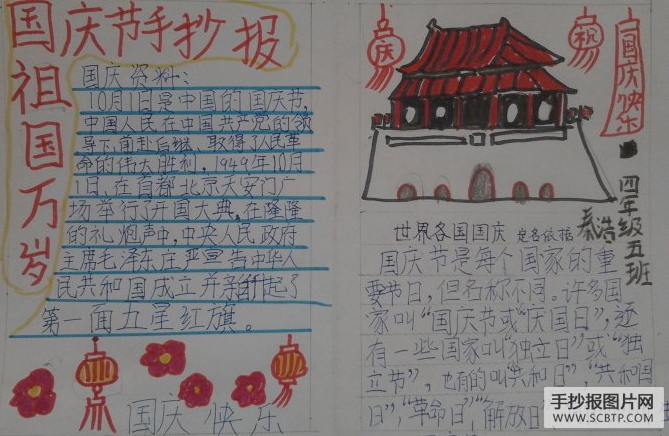 国庆节手抄报
祖国万岁
国庆资料：
10月1日是中国的国庆节，
中国人民在中国共产党的领
导下，前赴后继，取得了人民革
命的伟大胜利。1949年10月
1日，在首都北京天安门广
场举行了开国大典，在隆隆
的礼炮声中，中央人民政府
主席毛泽东庄严宣告中华人
民共和国成立并亲自升起了
第一面五星红旗。
国庆快乐
庆
祝
国庆快乐
四年级五班
秦浩
世界各国国庆 定名依据
国庆节是每个国家的重
要节日，但名称不同。许多国
家叫“国庆节或“庆国日”，还
有一些国家叫“独立日”或“独
立节”，也有的叫“共和日”，“共和国
日”，“革命日”，解放日
手抄报图片网
WWW.SCBTP.COM